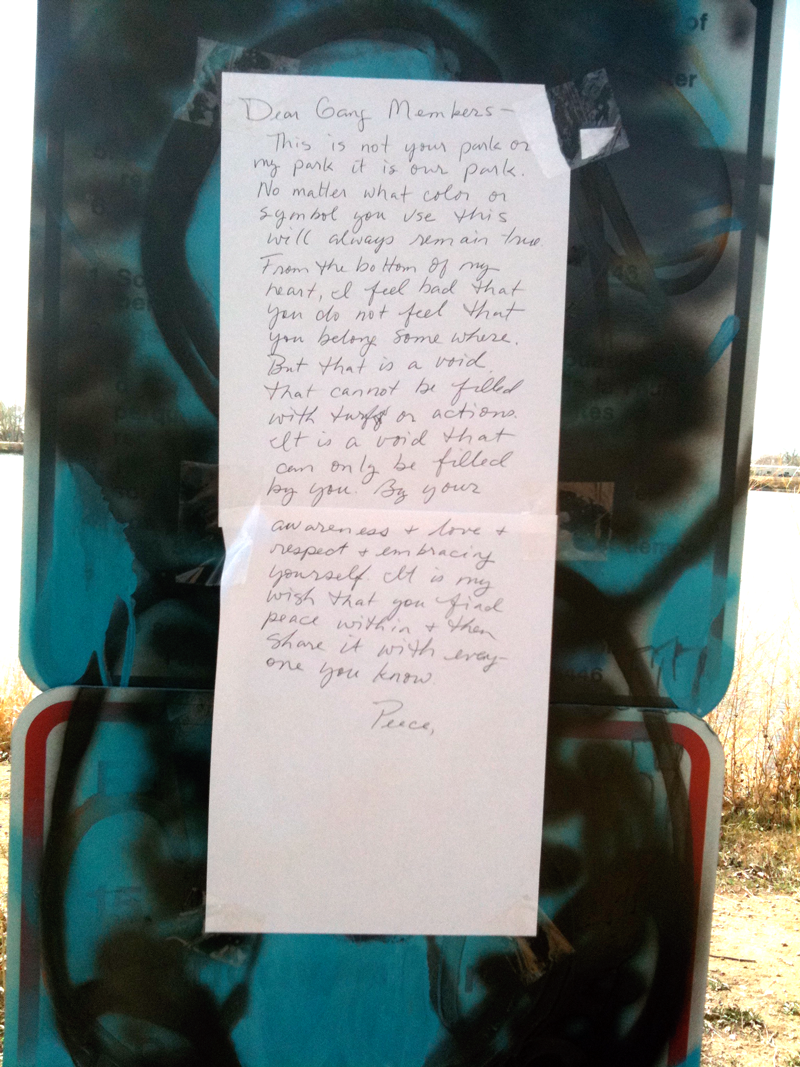 of
ter
Dear Gang Members—
This is not your park or
my park it is our park.
No matter what color or
symbol you use this
will always remain true.
From the bottom of my
heart, I feel bad that
you do not feel that
you belong some where.
But that is a void
that cannot be filled
with turf or actions.
It is a void that
can only be filled
by you. By your
awareness + love +
respect + embracing
yourself. It is my
wish that you find
peace within + then
share it with every-
one you know.
Peace,